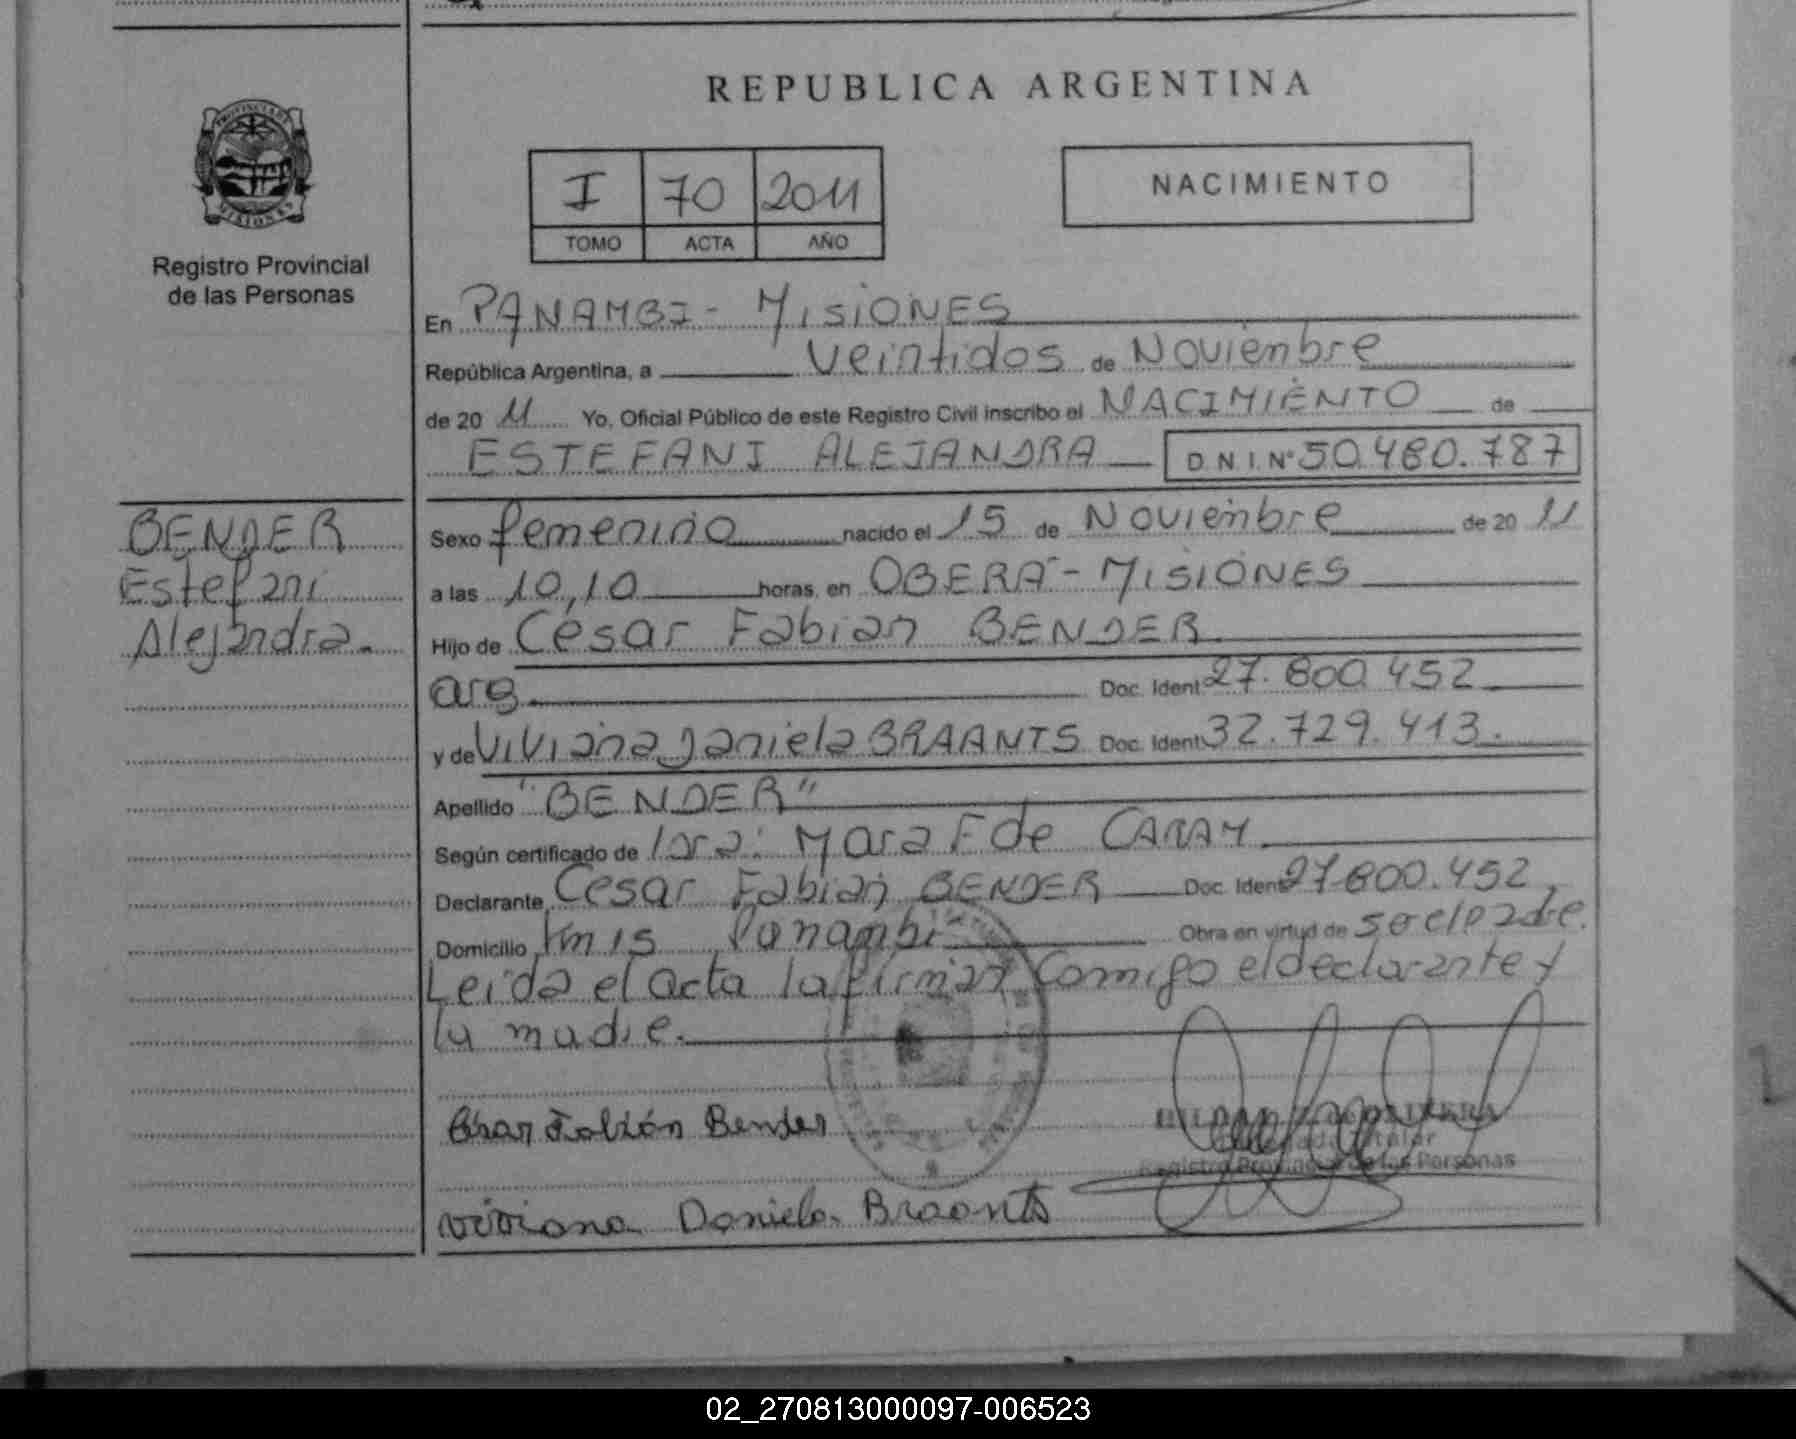 REPUBLICA ARGENTINA
PROVINCIA DE
MISIONES
Registro Provincial
de las Personas
I 70 2011
TOMO ACTA AÑO
NACIMIENTO
En PANAMBI - MISIONES
República Argentina, a veintidos de Noviembre
de 20 11 Yo, Oficial Público de este Registro Civil inscribo el NACIMIENTO de
ESTEFANI ALEJANDRA D N I. Nº 50.480.787
BENDER
Estefani
Alejandra.
Sexo femenino nacido el 15 de Noviembre de 20 11
a las 10,10 horas, en OBERÁ - MISIONES
Hijo de Cesar Fabian BENDER.
arg. Doc. Ident 27.800.452
y de Viviana Daniela BRAANTS Doc. Ident 32.729.413.
Apellido "BENDER"
Según certificado de Mara F de
Declarante Cesar Fabian BENDER Doc. Ident 27.800.452,
Domicilio Km 15 Panambi Obra en virtud de
Leida el acta la firman comigo el declarante y
la madre.
Cesar Fabián Bender
Registro Provincial de las Personas
Viviana Daniela Braants
02_270813000097-006523